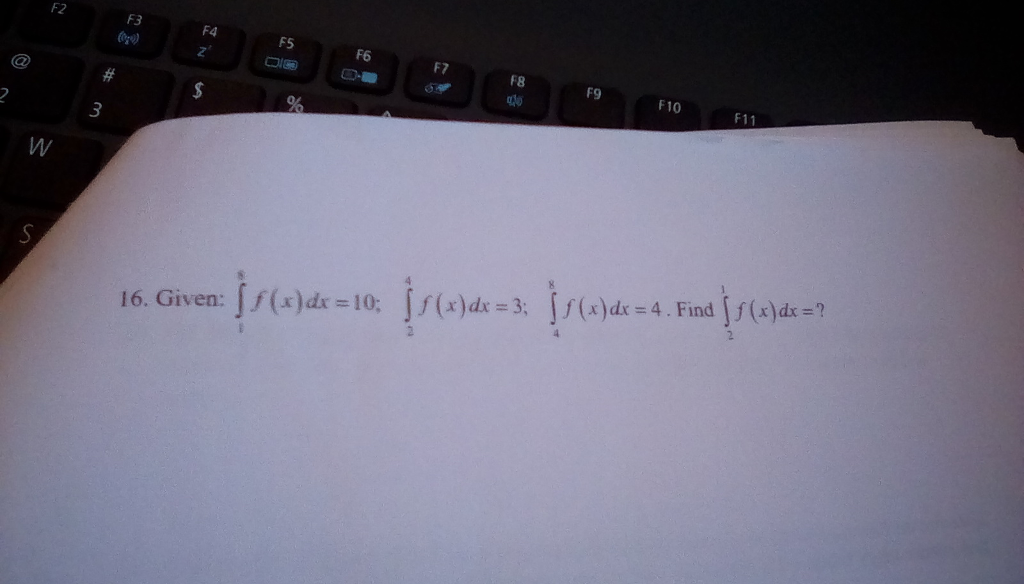 F2 F3 F4 F5 F6 F7 F8 F9 F10 F11
@ # $ %
2 3
z
W
S
16. Given: ∫₁⁸ f(x)dx = 10; ∫₂⁴ f(x)dx = 3; ∫₄⁸ f(x)dx = 4. Find ∫₂¹ f(x)dx = ?